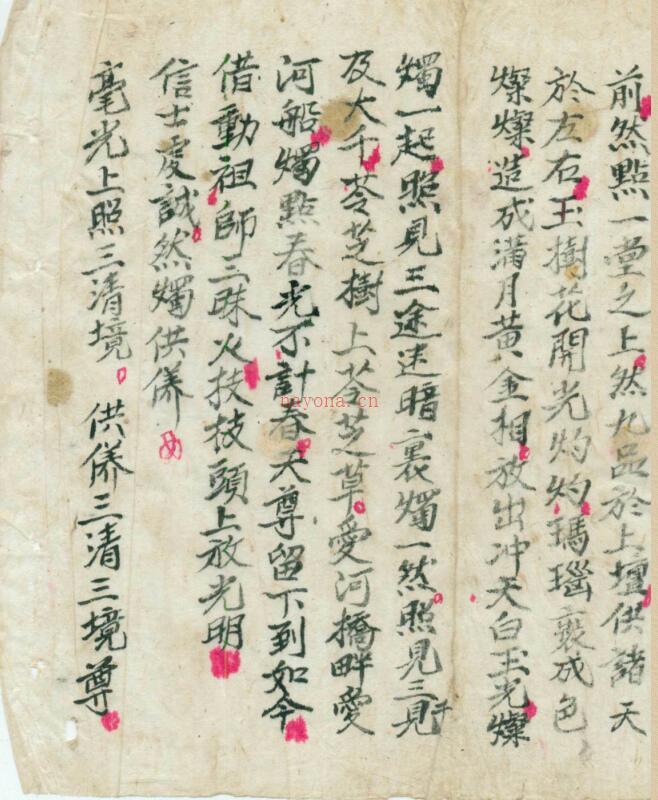 前然點一堂之上然九品於上壇供諸天
於左右玉樹花開光灼灼瑪瑙裹成色
燦燦造成滿月黃金相放出冲天白玉光燦
燭一起照見三途迷暗裏燭一然照見三見千
及大千苓芝樹上苓芝草愛河橋畔愛
河船燭點春光不計春天尊留下到如今
借動祖師三昧火技枝頭上放光明
信士虔誠然燭供養
毫光上照三清境。供養三清三境尊
nayona.cn